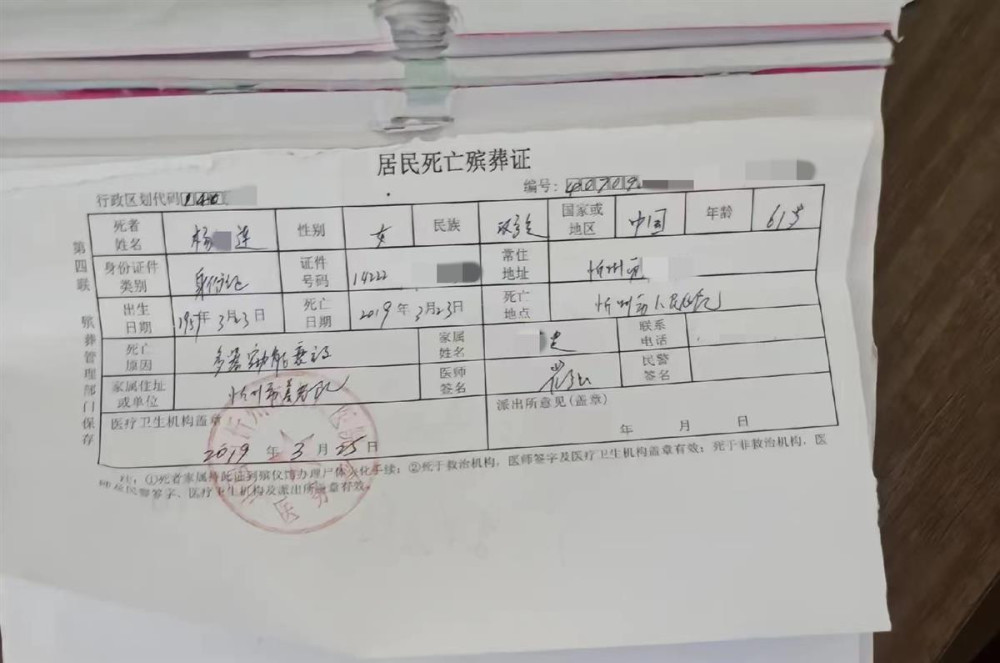 居民死亡殡葬证
行政区划代码 140
编号: 407019
死者姓名 杨 莲 性别 女 民族 国家或地区 中国 年龄 61岁
身份证件类别 身份证 证件号码 14222 常住地址 忻州市
出生日期 195 年3月23日 死亡日期 2019年3月23日 死亡地点 忻州市人民医院
死亡原因 多器官功能衰竭 家属姓名 联系电话
家属住址或单位 忻州市 医师签名 民警签名
医疗卫生机构盖章 派出所意见(盖章)
2019 年 3 月 25 日 年 月 日
注:①死者家属持此证到殡仪馆办理尸体火化手续;②死于救治机构,医师签字及医疗卫生机构盖章有效;死于非救治机构,医
师及民警签字、医疗卫生机构及派出所盖章有效。
第四联 殡葬管理部门保存